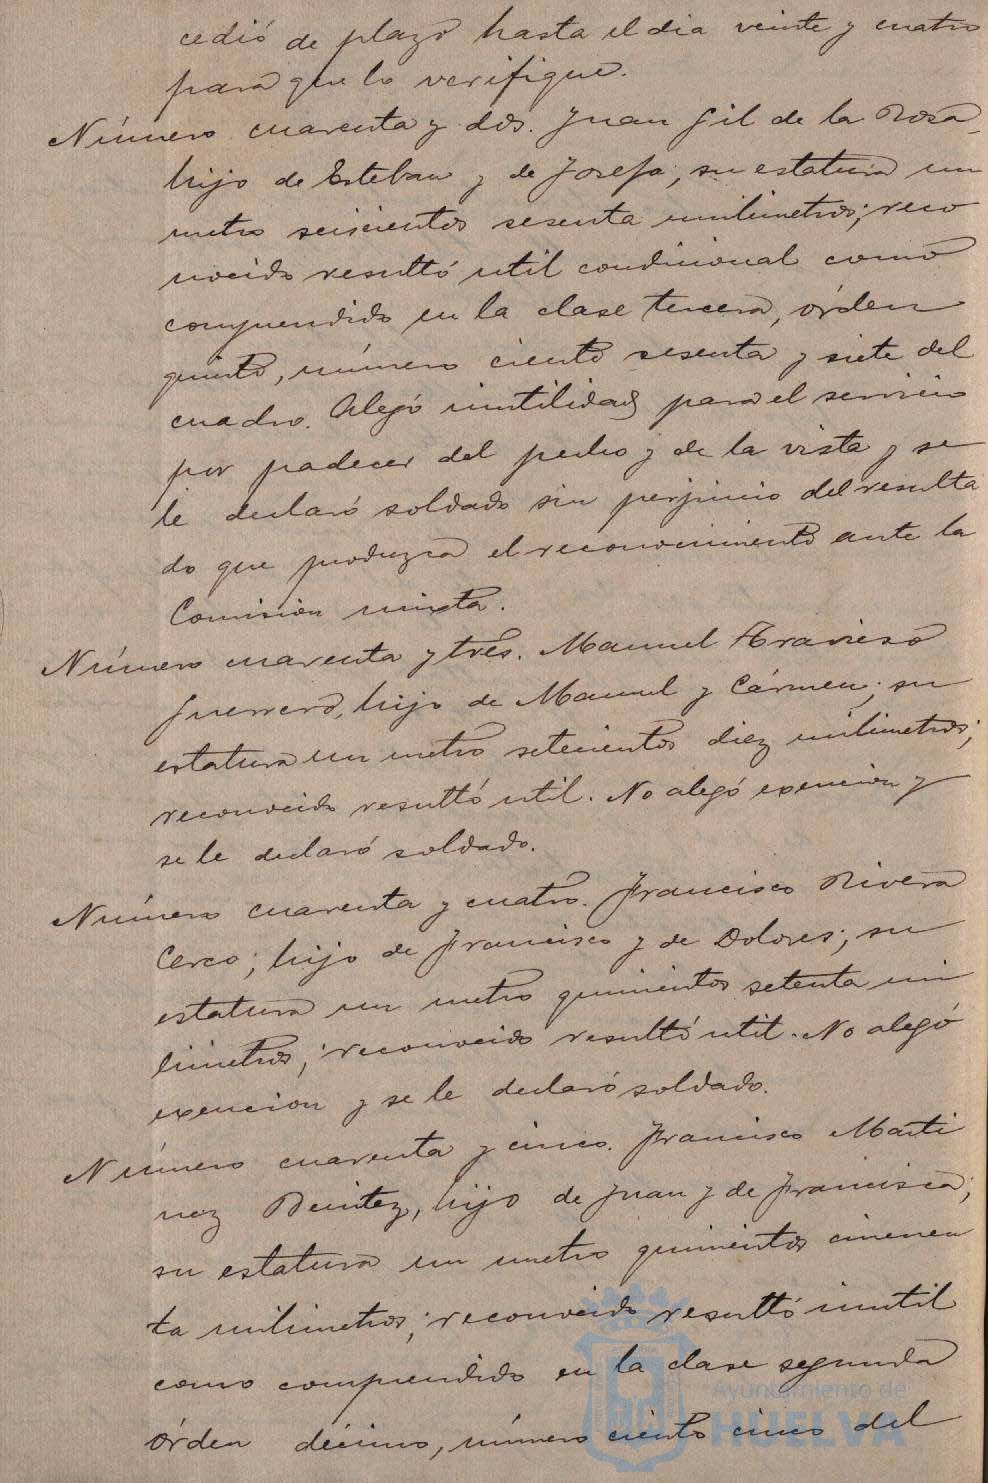 cedió de plazo hasta el dia veinte y cuatro
para que lo verifique.
Número cuarenta y dos. Juan Gil de la Rosa
hijo de Esteban y de Josefa, su estatura un
metro seiscientos sesenta milimetros; reco
nocido resultó util condicional como
comprendido en la clase tercera, órden
quinto, número ciento sesenta y siete del
cuadro. Alegó inutilidad para el servicio
por padecer del pecho y de la vista y se
le declaró soldado sin perjuicio del resulta
do que produzca el reconocimiento ante la
Comision mixta.
Número cuarenta y tres. Manuel Travieso
Guerrero, hijo de Manuel y Cármen; su
estatura un metro setecientos diez milimetros;
reconocido resultó util. No alegó exencion y
se le declaró soldado.
Número cuarenta y cuatro. Francisco Rivera
Cerco; hijo de Francisco y de Dolores; su
estatura un metro quinientos setenta mi
limetros; reconocido resultó util. No alegó
exencion y se le declaró soldado.
Número cuarenta y cinco. Francisco Marti
nez Benitez, hijo de Juan y de Francisca;
su estatura un metro quinientos cincuen
ta milimetros; reconocido resultó inutil
como comprendido en la clase segunda
órden décimo, número ciento cinco del
Ayuntamiento de
HUELVA